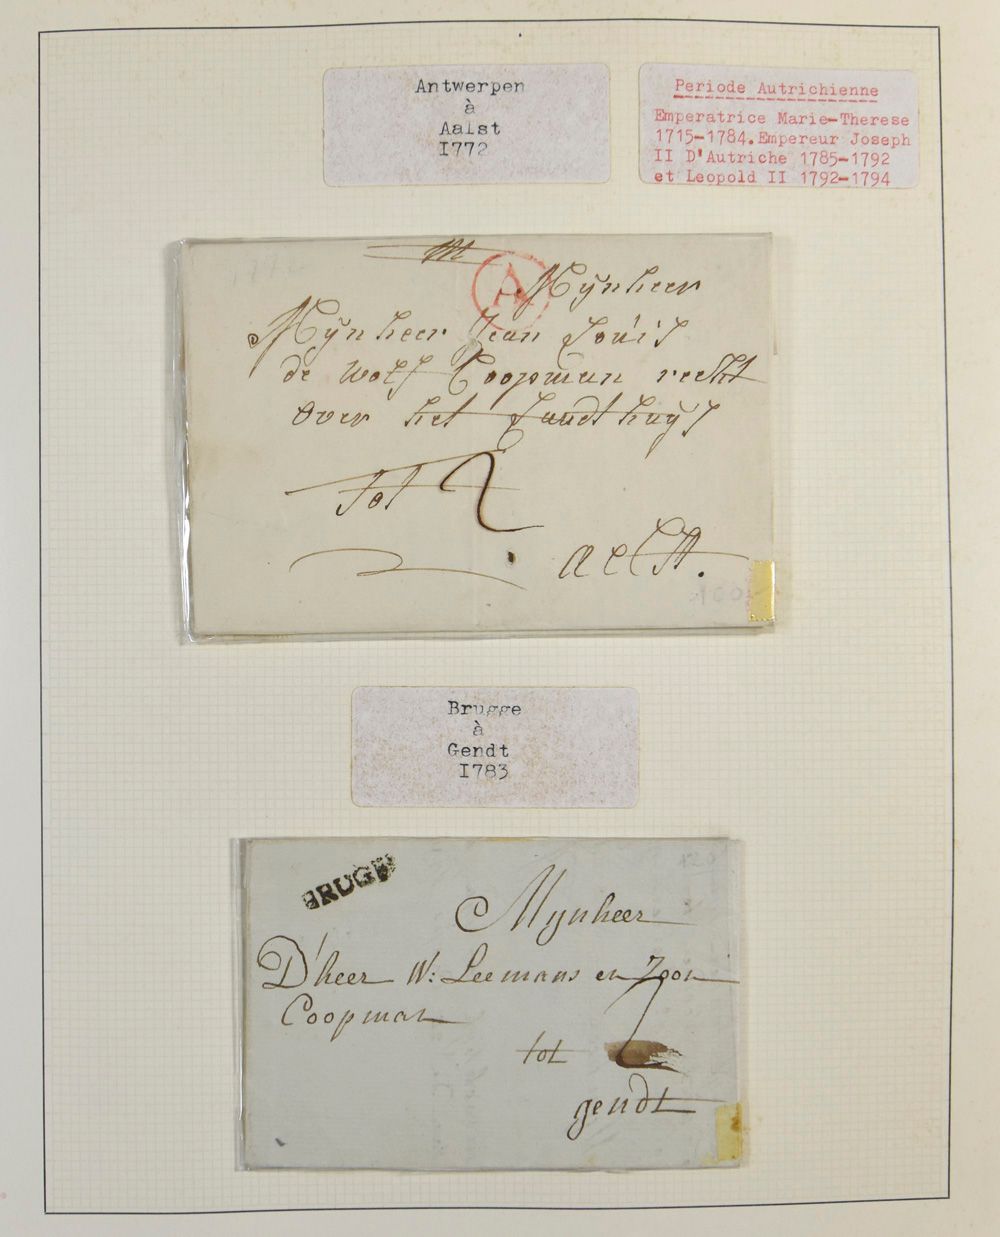 Antwerpen
à
Aalst
I772
Periode Autrichienne
Emperatrice Marie-Therese
1715-1784.Empereur Joseph
II D'Autriche 1785-1792
et Leopold II 1792-1794
A
Mijnheer
Mijnheer Jean Louis
de Wolf Coopman recht
over het Landthuijs
tot 2
aelst.
Brugge
à
Gendt
I783
BRUGE
Mijnheer
D'heer W: Leemans en Zoon
Coopman
tot
gendt